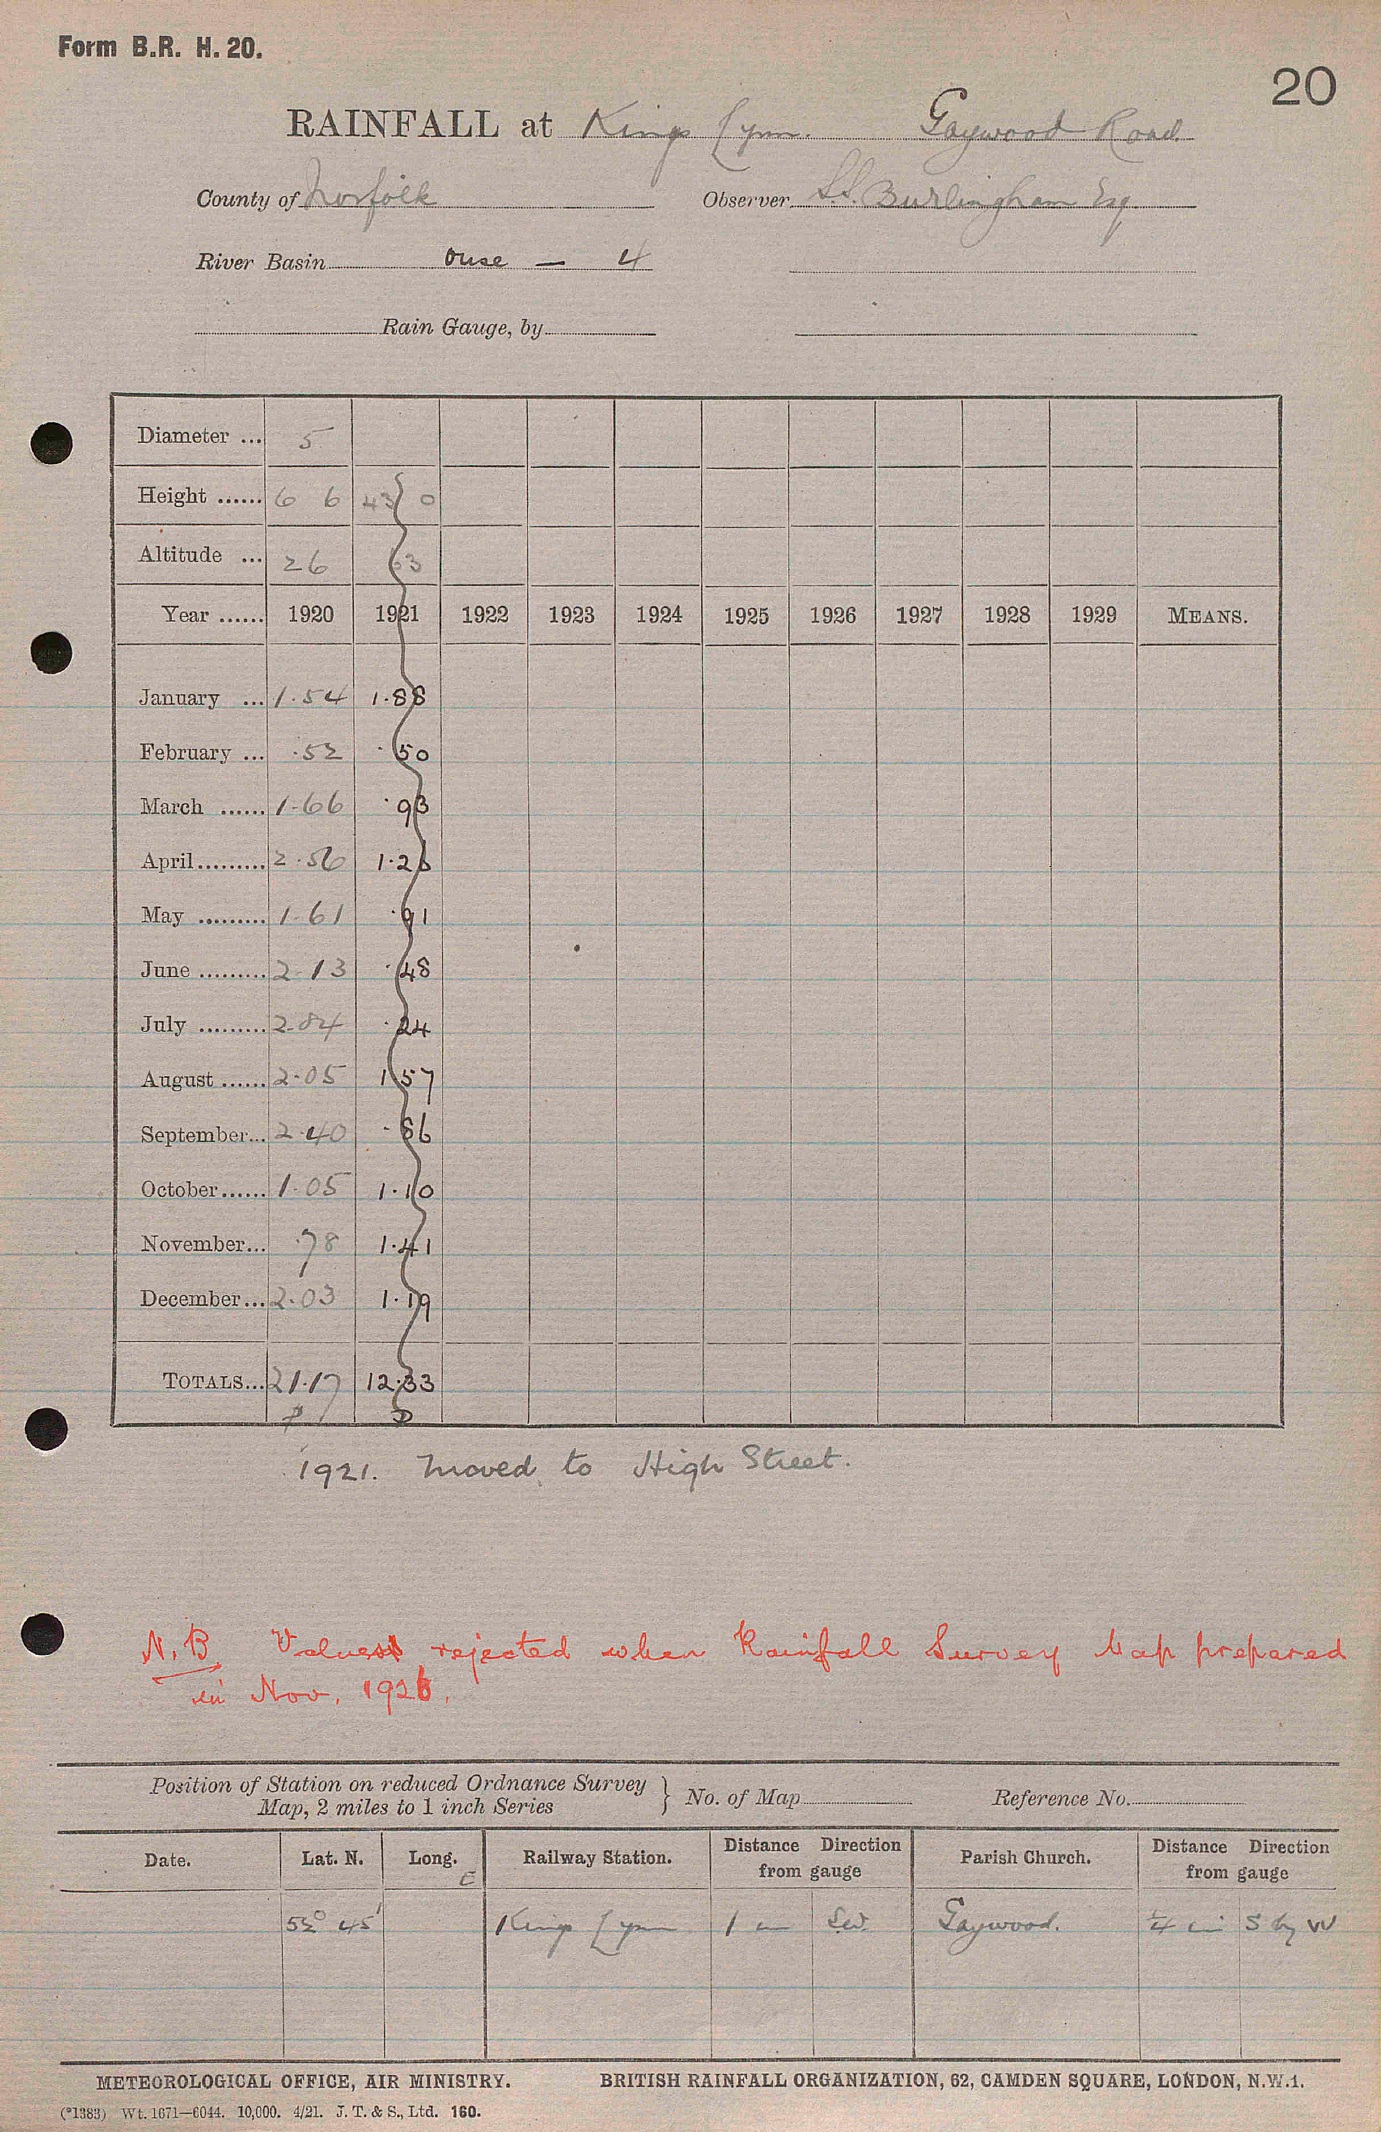 Form B.R. H. 20.
20
RAINFALL at Kings Lynn. Gaywood Road
County of Norfolk Observer S.S. Burlingham Esq.
River Basin Ouse — 4
Rain Gauge, by
Diameter ... 5
Height ...... 6 6 43 0
Altitude ... 26 63
Year ...... 1920 1921 1922 1923 1924 1925 1926 1927 1928 1929 MEANS.
January ... 1.54 1.88
February ... .52 .50
March ...... 1.66 .93
April ......... 2.56 1.26
May ......... 1.61 .91
June ......... 2.13 .48
July ......... 2.84 .24
August ...... 2.05 1.57
September... 2.40 .86
October ...... 1.05 1.10
November... .78 1.41
December... 2.03 1.19
TOTALS... 21.17 12.33
1921. Moved to High Street.
N.B. Values rejected when Rainfall Survey Map prepared
in Nov. 1926.
Position of Station on reduced Ordnance Survey
Map, 2 miles to 1 inch Series } No. of Map Reference No.
Date. Lat. N. Long. E Railway Station. Distance Direction from gauge Parish Church. Distance Direction from gauge
52° 45' Kings Lynn 1 m SW. Gaywood. ¼ mi S by W
METEOROLOGICAL OFFICE, AIR MINISTRY. BRITISH RAINFALL ORGANIZATION, 62, CAMDEN SQUARE, LONDON, N.W.1.
(*1383) Wt. 1671—6044. 10,000. 4/21. J. T. & S., Ltd. 160.